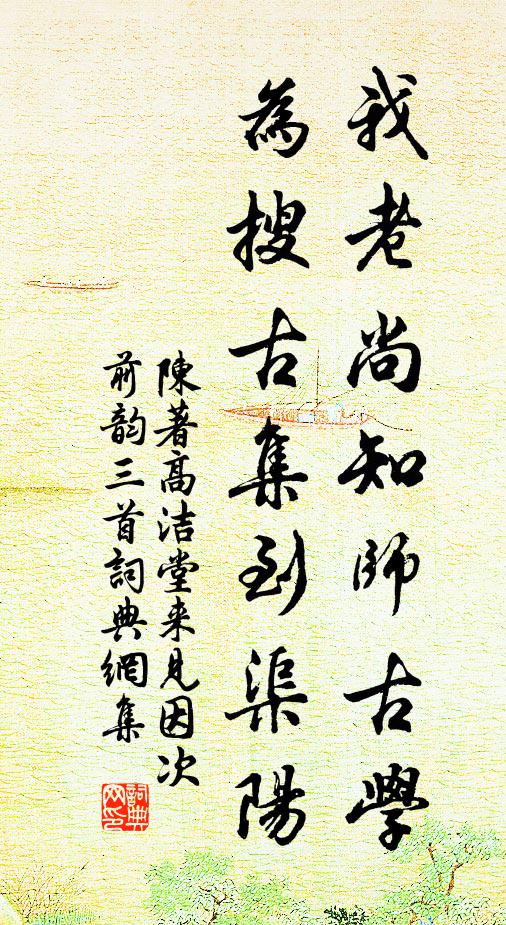 我老尚知師古學
為搜古集到渠陽
陳著高洁堂来見因次
前韵三首詞典網集
詞典網印